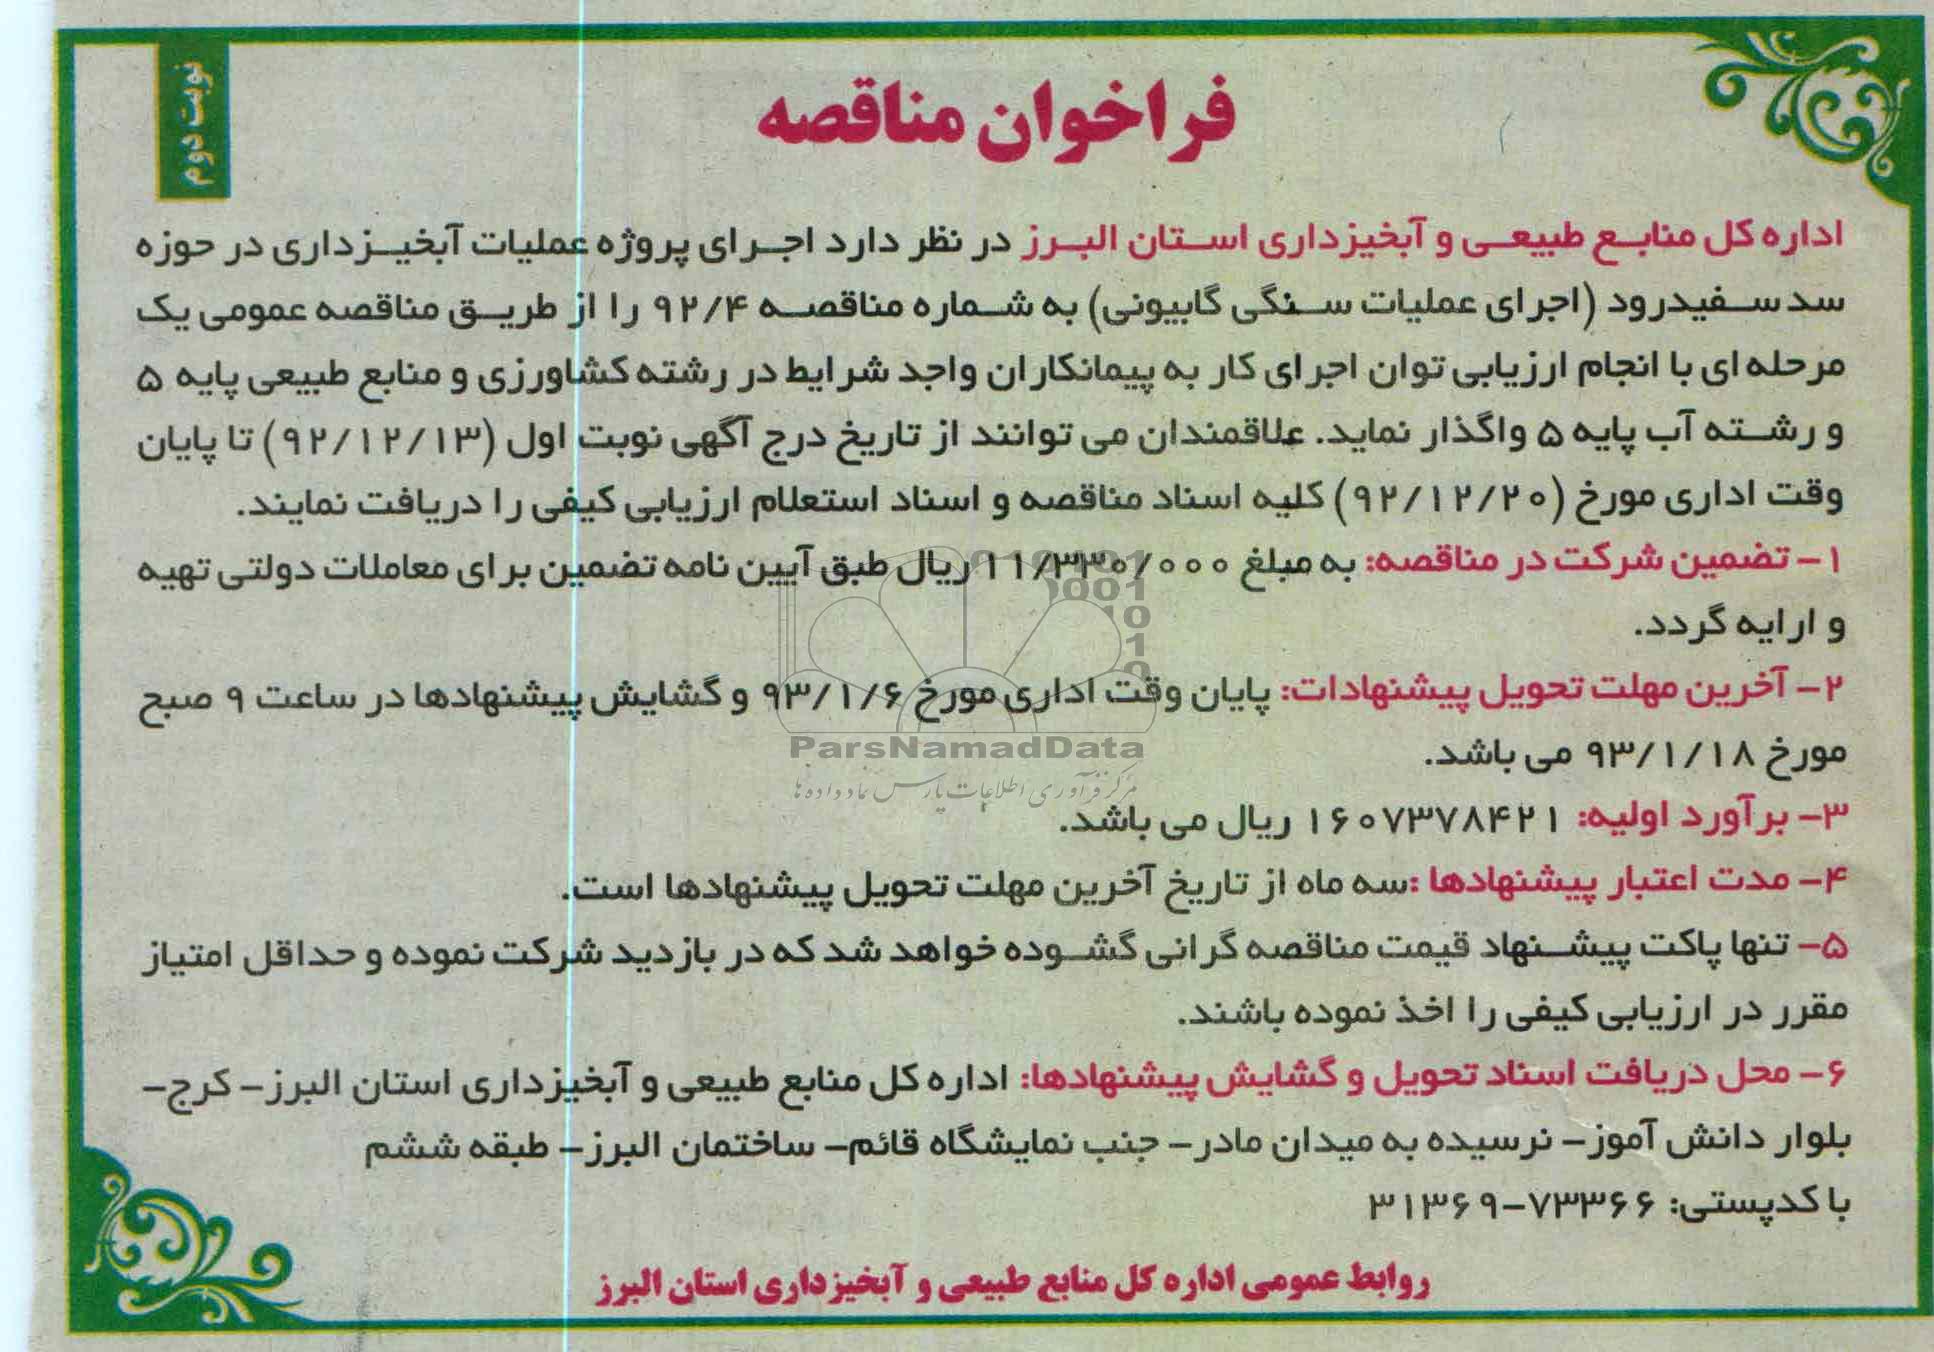 نوبت دوم
فراخوان مناقصه
اداره کل منابع طبیعی و آبخیزداری استان البرز در نظر دارد اجرای پروژه عملیات آبخیزداری در حوزه
سد سفیدرود (اجرای عملیات سنگی گابیونی) به شماره مناقصه ۹۲/۴ را از طریق مناقصه عمومی یک
مرحله ای با انجام ارزیابی توان اجرای کار به پیمانکاران واجد شرایط در رشته کشاورزی و منابع طبیعی پایه ۵
و رشته آب پایه ۵ واگذار نماید. علاقمندان می توانند از تاریخ درج آگهی نوبت اول (۹۲/۱۲/۱۳) تا پایان
وقت اداری مورخ (۹۲/۱۲/۲۰) کلیه اسناد مناقصه و اسناد استعلام ارزیابی کیفی را دریافت نمایند.
۱- تضمین شرکت در مناقصه: به مبلغ ۱۱/۳۳۰/۰۰۰ ریال طبق آیین نامه تضمین برای معاملات دولتی تهیه
و ارایه گردد.
۲- آخرین مهلت تحویل پیشنهادات: پایان وقت اداری مورخ ۹۳/۱/۶ و گشایش پیشنهادها در ساعت ۹ صبح
مورخ ۹۳/۱/۱۸ می باشد.
ParsNamadData
مرکز فرآوری اطلاعات پارس نماد داده ها
۳- برآورد اولیه: ۱۶۰۷۳۷۸۴۲۱ ریال می باشد.
۴- مدت اعتبار پیشنهادها :سه ماه از تاریخ آخرین مهلت تحویل پیشنهادها است.
۵- تنها پاکت پیشنهاد قیمت مناقصه گرانی گشوده خواهد شد که در بازدید شرکت نموده و حداقل امتیاز
مقرر در ارزیابی کیفی را اخذ نموده باشند.
۶- محل دریافت اسناد تحویل و گشایش پیشنهادها: اداره کل منابع طبیعی و آبخیزداری استان البرز- کرج-
بلوار دانش آموز- نرسیده به میدان مادر- جنب نمایشگاه قائم- ساختمان البرز- طبقه ششم
با کدپستی: ۷۳۳۶۶-۳۱۳۶۹
روابط عمومی اداره کل منابع طبیعی و آبخیزداری استان البرز